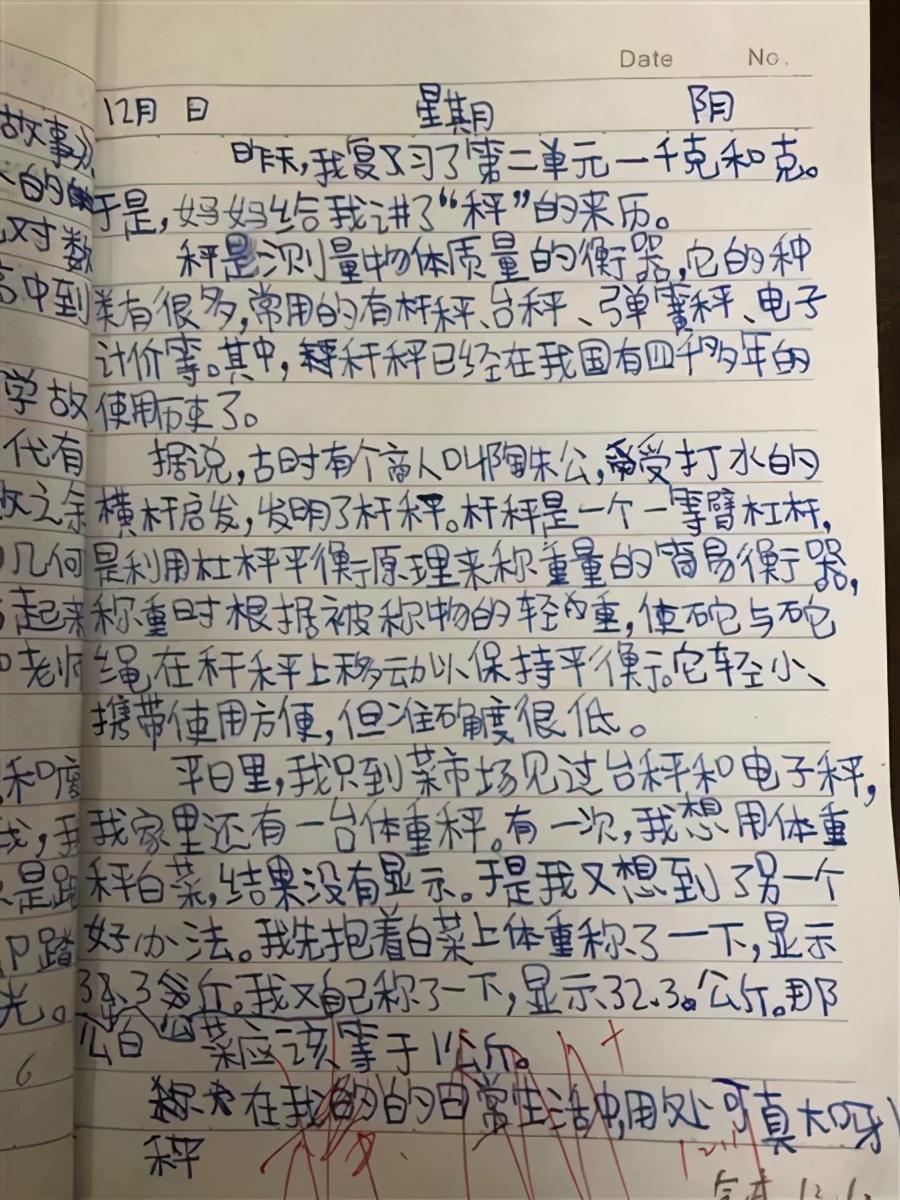 Date No.
12月 日 星期 阴
故事 昨天,我复习了第二单元一千克和克。
的 于是,妈妈给我讲了“秤”的来历。
对数 秤是测量物体质量的衡器,它的种
中到 类有很多,常用的有杆秤、台秤、弹簧秤、电子
计价等。其中,杆秤已经在我国有四千多年的
学故 使用历来了。
代有 据说,古时有个商人叫陶朱公,受打水的
之余 横杆启发,发明了杆秤。杆秤是一个一等臂杠杆,
几何 是利用杜秤平衡原理来称重量的简易衡器,
起来 称重时根据被称物的轻重,使砣与砣
老师 绳在秆秤上移动以保持平衡。它轻小、
携带使用方便,但准确度很低。
和 平日里,我只到菜市场见过台秤和电子秤,
我家里还有一台体重秤。有一次,我想用体重
是 秤白菜,结果没有显示。于是我又想到了另一个
踏 好办法。我先抱着白菜上体重称了一下,显示
光。 33.3公斤。我又自己称了一下,显示32.3。公斤。那
么白菜应该等于1公斤。
6
秤在我的的日常生活中,用处可真大呀!